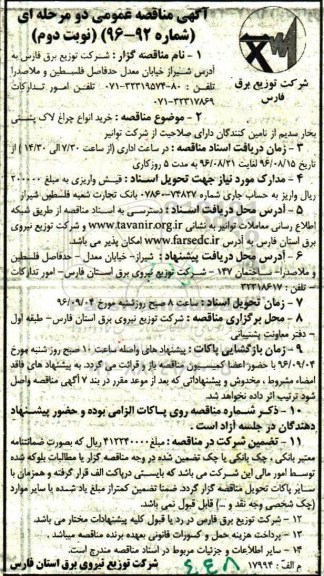 آگهی مناقصه عمومی دو مرحله ای
(شماره ۹۲-۹۶) (نوبت دوم)
شرکت توزیع برق
فارس
۱ - نام مناقصه گزار : شرکت توزیع برق فارس به
آدرس شیراز خیابان معدل حدفاصل فلسطین و ملاصدرا
تلفن : ۸۰-۳۲۳۱۹۵۷۴-۰۷۱ تلفن امور تدارکات
۰۷۱-۳۲۳۱۷۸۶۹
۲ - موضوع مناقصه : خرید انواع چراغ لاک پشتی
بخار سدیم از تامین کنندگان دارای صلاحیت از شرکت توانیر
۳ - زمان دریافت اسناد مناقصه : در ساعت اداری (از ساعت ۷/۳۰ الی ۱۴/۳۰ ) از
تاریخ ۹۶/۰۸/۱۵ لغایت ۹۶/۰۸/۲۱ به مدت ۵ روزکاری
۴ - مدارک مورد نیاز جهت تحویل اسناد : فیش واریزی به مبلغ ۲۰۰۰۰۰
ریال واریز به حساب جاری شماره ۰۷۸۶۰۰۷۴۸۲۷ بانک تجارت شعبه فلسطین شیراز
۵ - آدرس محل دریافت اسناد : دسترسی به اسناد مناقصه از طریق شبکه
اطلاع رسانی معاملات توانیر به نشانی www.tavanir.org.ir و شرکت توزیع نیروی
برق استان فارس به آدرس www.farsedc.ir امکان پذیر می باشد.
۶ - آدرس محل دریافت پیشنهاد : شیراز- خیابان معدل - حدفاصل فلسطین
و ملاصدرا- ساختمان ۱۴۷ - شرکت توزیع نیروی برق استان فارس- امور تدارکات
- تلفن : ۳۲۳۱۸۶۱۷
۷ - زمان تحویل اسناد : ساعت ۸ صبح روزشنبه مورخ ۹۶/۰۹/۰۴
۸ - محل برگزاری مناقصه : شرکت توزیع نیروی برق استان فارس- طبقه اول
- دفتر معاونت پشتیبانی
۹ - زمان بازگشایی پاکات : پیشنهاد های واصله ساعت ۱۰ صبح روز شنبه مورخ
۹۶/۰۹/۰۴ با حضور اعضا کمیسیون مناقصه باز و قرائت می گردد. به پیشنهاد های فاقد
امضاء مشروط ، مخدوش و پیشنهاداتی که بعد از موعد مقرر در بند ۷ آگهی مناقصه واصل
شود ترتیب اثر داده نخواهد شد.
۱۰ - ذکر شماره مناقصه روی پاکات الزامی بوده و حضور پیشنهاد
دهندگان در جلسه آزاد است .
۱۱ - تضمین شرکت در مناقصه : مبلغ ۴۱۲۲۴۰۰۰۰ ریال که بصورت ضمانتنامه
معتبر بانکی ، چک بانکی یا چک تضمین شده در وجه مناقصه گزار یا مطالبات بلوکه شده
توسط امور مالی این شرکت می باشد که بایستی درپاکت الف قرار گرفته و همزمان با
سایر پاکات تحویل مناقصه گزار گردد. ضمنا تضمین کمتراز مبلغ یاد شده یا سایر موارد
(چک شخصی وجه نقد و ...) قابل قبول نمی باشد.
۱۲ - شرکت توزیع برق فارس در رد یا قبول کلیه پیشنهادات مختار می باشد.
۱۳ - پرداخت هزینه حمل و کسورات قانونی بعهده برنده مناقصه میباشد .
۱۴ - سایر اطلاعات و جزئیات مربوط در اسناد مناقصه مندرج است.
م الف : ۱۷۹۹۴
شرکت توزیع نیروی برق استان فارس